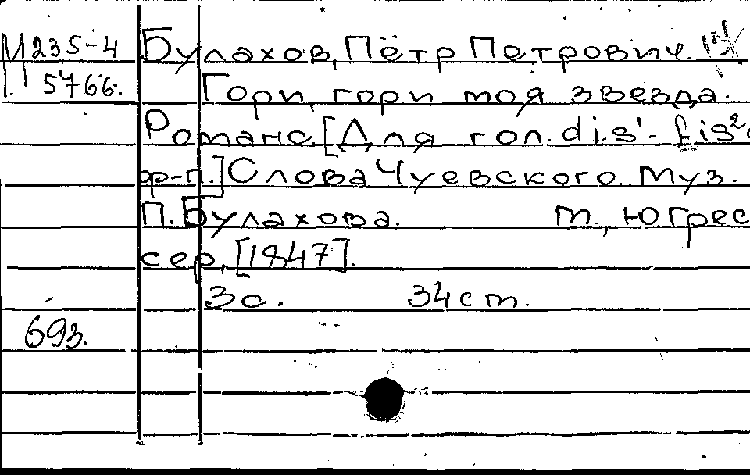 М 235-4 Булахов, Пётр Петрович.
5766. Гори, гори моя звезда.
Романс. [Для гол. dis¹- fis²
ф-п.] Слова Чуевского. Муз.
П. Булахова. т, Югрес
сер, [1847].
3 с. 34 ст.
693.